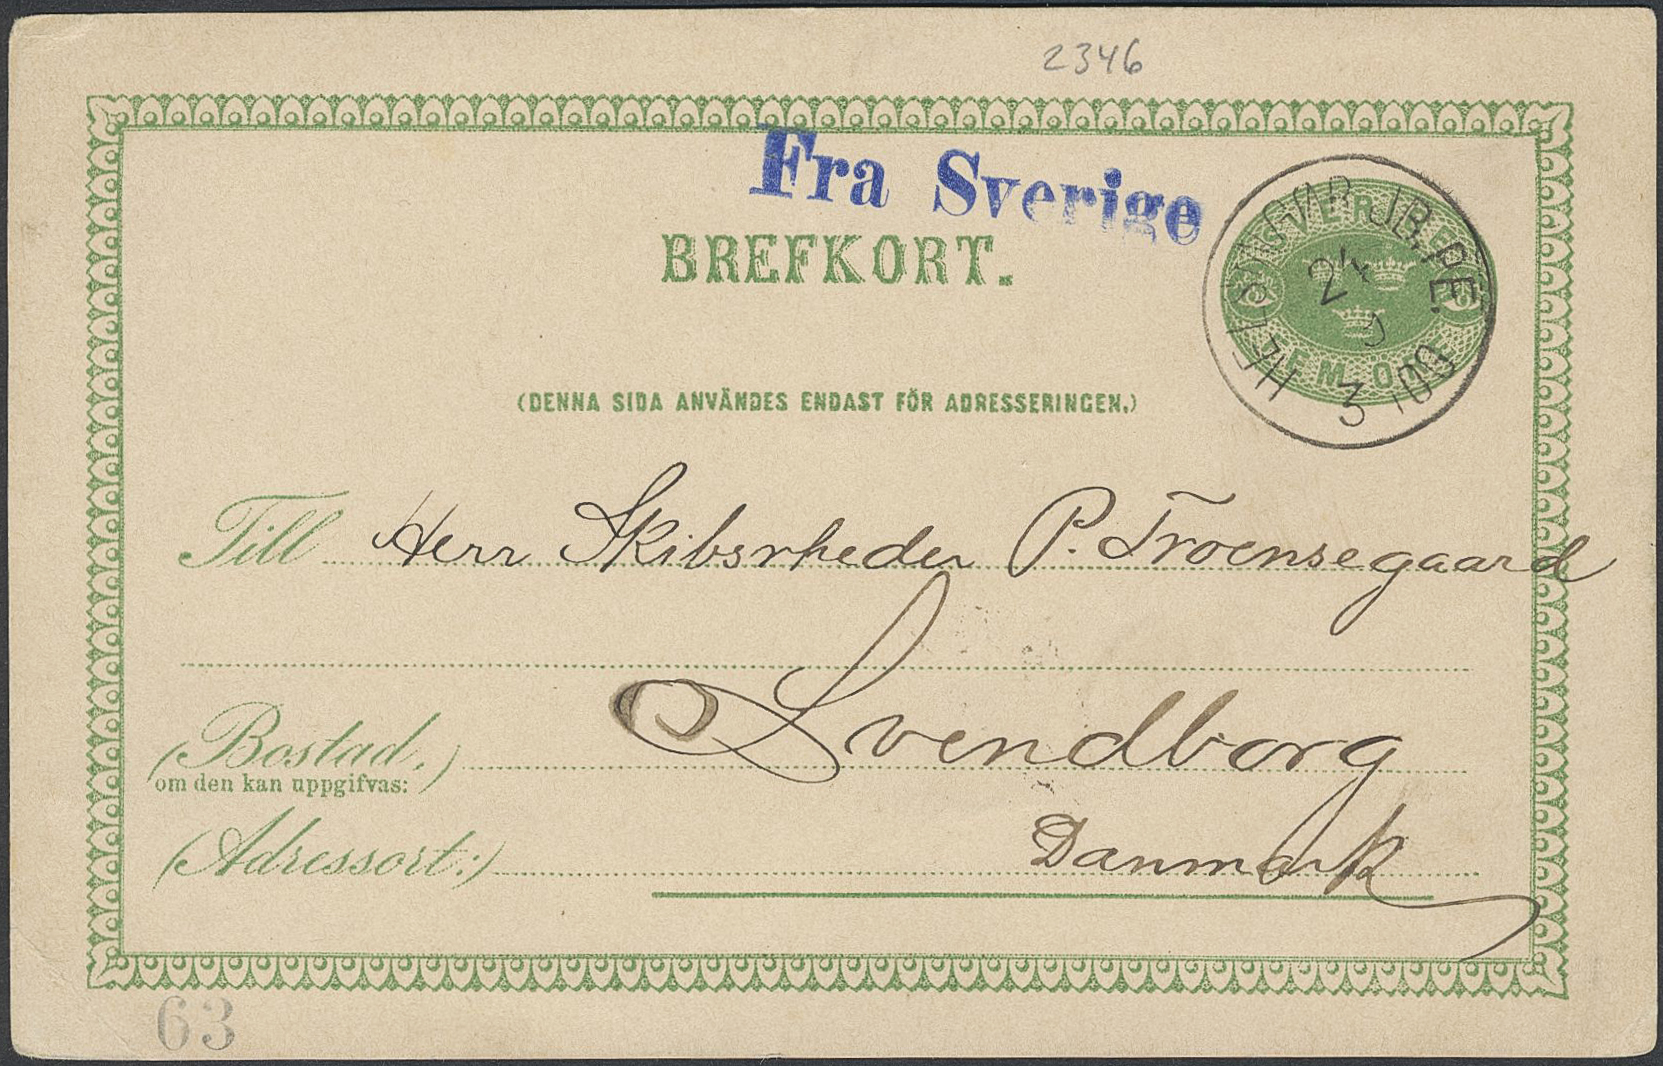 2346
Fra Sverige
BREFKORT.
(DENNA SIDA ANVÄNDES ENDAST FÖR ADRESSERINGEN.)
SVERIGE
FEM ÖRE
24
9
3
Till Herr Skibsrheder P. Troensegaard
(Bostad,) Svendborg
om den kan uppgifvas:
(Adressort:) Danmark
63